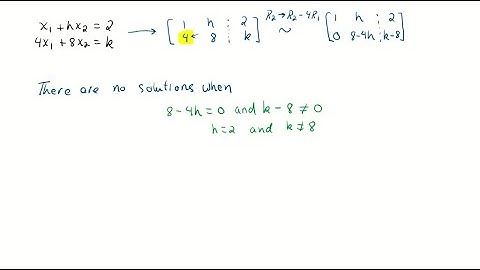 x₁ + hx₂ = 2
4x₁ + 8x₂ = k
→ [ 1 h ⋮ 2
4 8 ⋮ k ]
R₂→R₂-4R₁
~
[ 1 h ⋮ 2
0 8-4h ⋮ k-8 ]
There are no solutions when
8-4h = 0 and k-8 ≠ 0
h=2 and k≠8